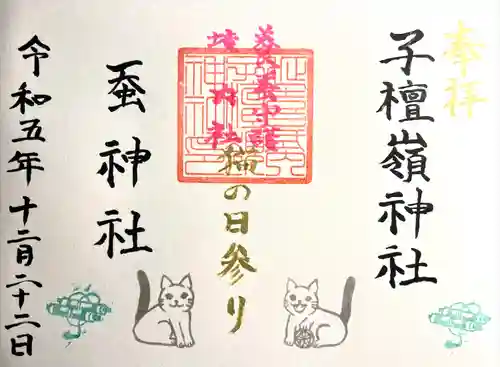 奉拝
子檀嶺神社
養蚕守護
境内社
猫の日参り
蚕神社
令和五年十二月二十二日